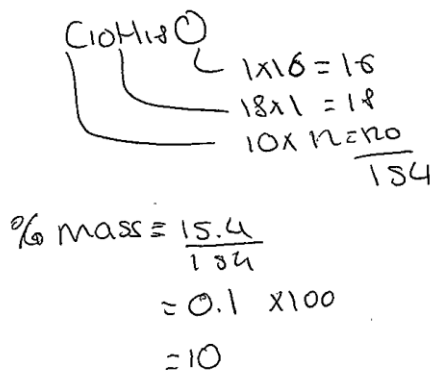 C10H18O
1x16 = 16
18x1 = 18
10x 12=120
154
% mass = 15.4
154
= 0.1 x100
= 10